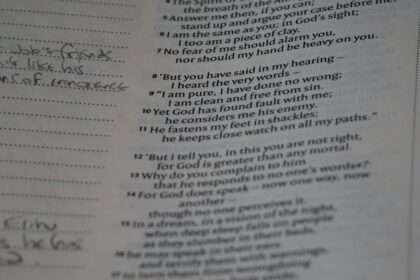 Job's friends
like his
of innocence
Elihu
his
4 The Spirit of
the breath of the
5 Answer me then, if you can;
stand up and argue your case before me.
6 I am the same as you in God's sight;
I too am a piece of clay.
7 No fear of me should alarm you,
nor should my hand be heavy on you.
8 'But you have said in my hearing –
I heard the very words –
9 "I am pure, I have done no wrong;
I am clean and free from sin.
10 Yet God has found fault with me;
he considers me his enemy.
11 He fastens my feet in shackles;
he keeps close watch on all my paths."
12 'But I tell you, in this you are not right,
for God is greater than any mortal.
13 Why do you complain to him
that he responds to no one's words?
14 For God does speak – now one way, now
another –
though no one perceives it.
15 In a dream, in a vision of the night,
when deep sleep falls on people
as they slumber in their beds,
16 he may speak in their ears
and terrify them with warnings,
17 to turn them from wrongdoing